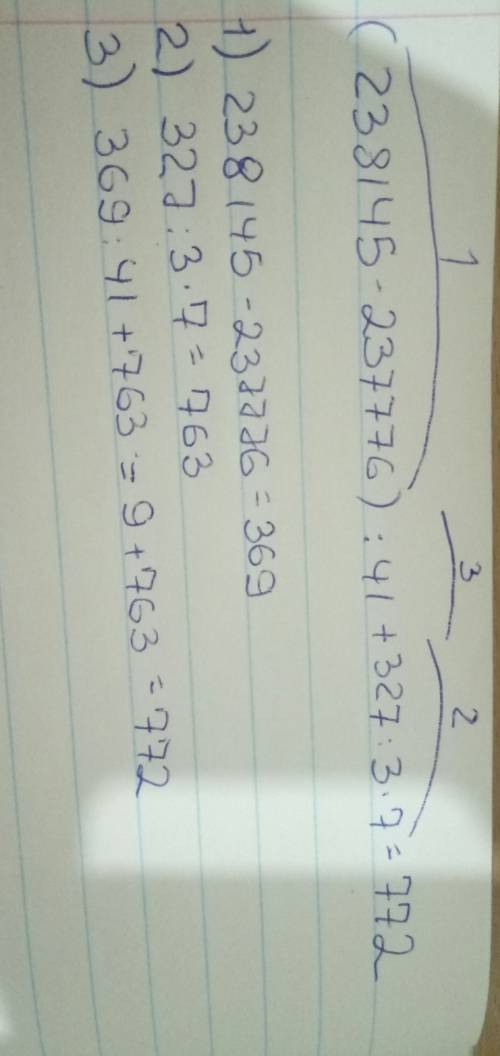 1 3 2
( 238145 - 237776) : 41 + 327 : 3 · 7 = 772
1) 238145 - 237776 = 369
2) 327 : 3 · 7 = 763
3) 369 : 41 + 763 = 9 + 763 = 772